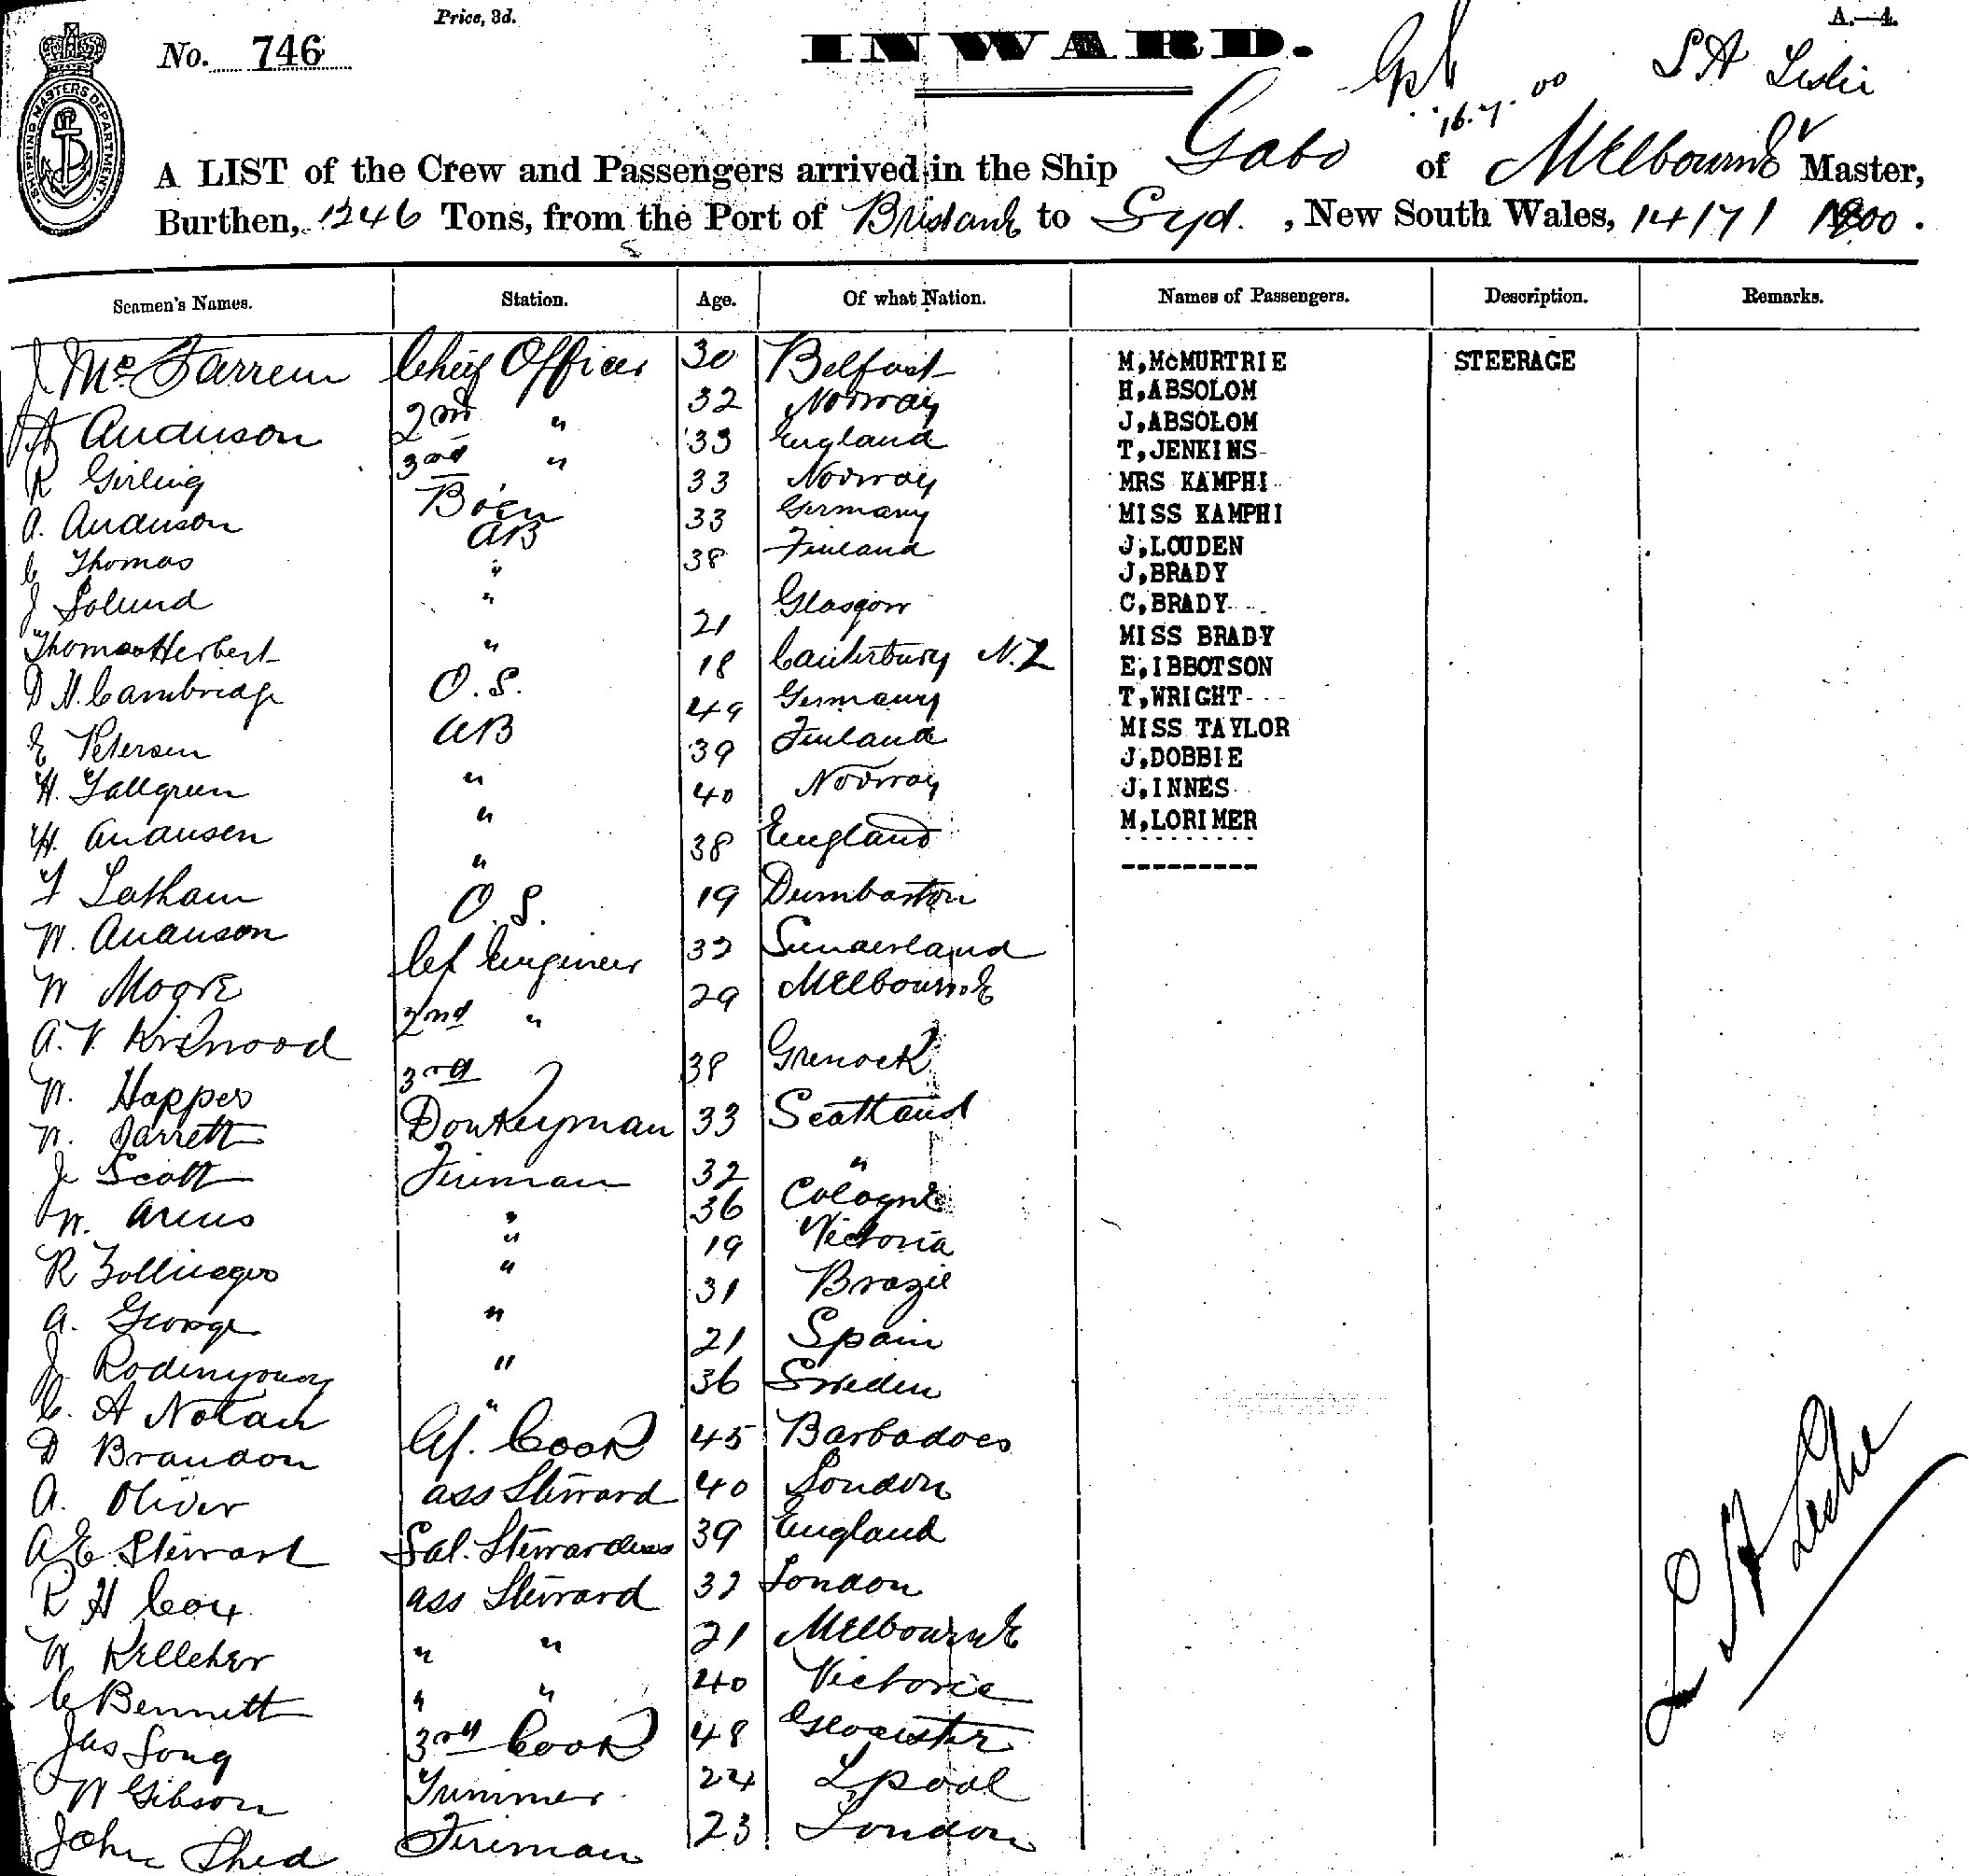 Price, 3d.
A.—4.
No. 746
INWARD.
S A Leslie
16.7.00
SHIPPING MASTERS DEPARTMENT
A LIST of the Crew and Passengers arrived in the Ship Gabo of Melbourne Master,
Burthen, 1246 Tons, from the Port of Brisbane to Syd. , New South Wales, 14/7/ 1900.
Seamen's Names. Station. Age. Of what Nation. Names of Passengers. Description. Remarks.
J McFarren Chief Officer 30 Belfast M,McMURTRIE STEERAGE
A Anderson 2nd " 32 Norway H,ABSOLOM
R Girling 3rd " 33 England J,ABSOLOM
A. Anderson Bosn 33 Norway T,JENKINS
C Thomas AB 33 Germany MRS KAMPHI
J Solund " 38 Finland MISS KAMPHI
Thomas Herbert " 21 Glasgow J,LOUDEN
D H. Cambridge O.S. 18 Canterbury N.Z J,BRADY
E Petersen AB 49 Germany C,BRADY
H. Tallgren " 39 Finland MISS BRADY
H. Andersen " 40 Norway E,IBBOTSON
F Latham " 38 England T,WRIGHT
W. Anderson O.S. 19 Dumbarton MISS TAYLOR
W Moore Cf Engineer 32 Sunderland J,DOBBIE
A.V. Kirkwood 2nd " 29 Melbourne J,INNES
W. Happer 3rd 38 Grenock M,LORIMER
W. Jarrett Donkeyman 33 Scotland
J Scott Fireman 32 "
W. Arens " 36 Cologne
R Zollinger " 19 Victoria
A. George " 31 Brazil
J. " 21 Spain
C. A Nolan " 36 Sweden
D Brandon Cf. Cook 45 Barbadoes
A. Oliver ass Steward 40 London
A E. Stewart Sal. Stewardess 39 England
R H Cox ass Steward 32 London
W Kelleher " " 21 Melbourne
C Bennett " " 40 Victoria
Jas Song 3rd Cook 48 Gloucester
W Gibson Trimmer 24 L,pool
John Shed Fireman 23 London
S A Leslie